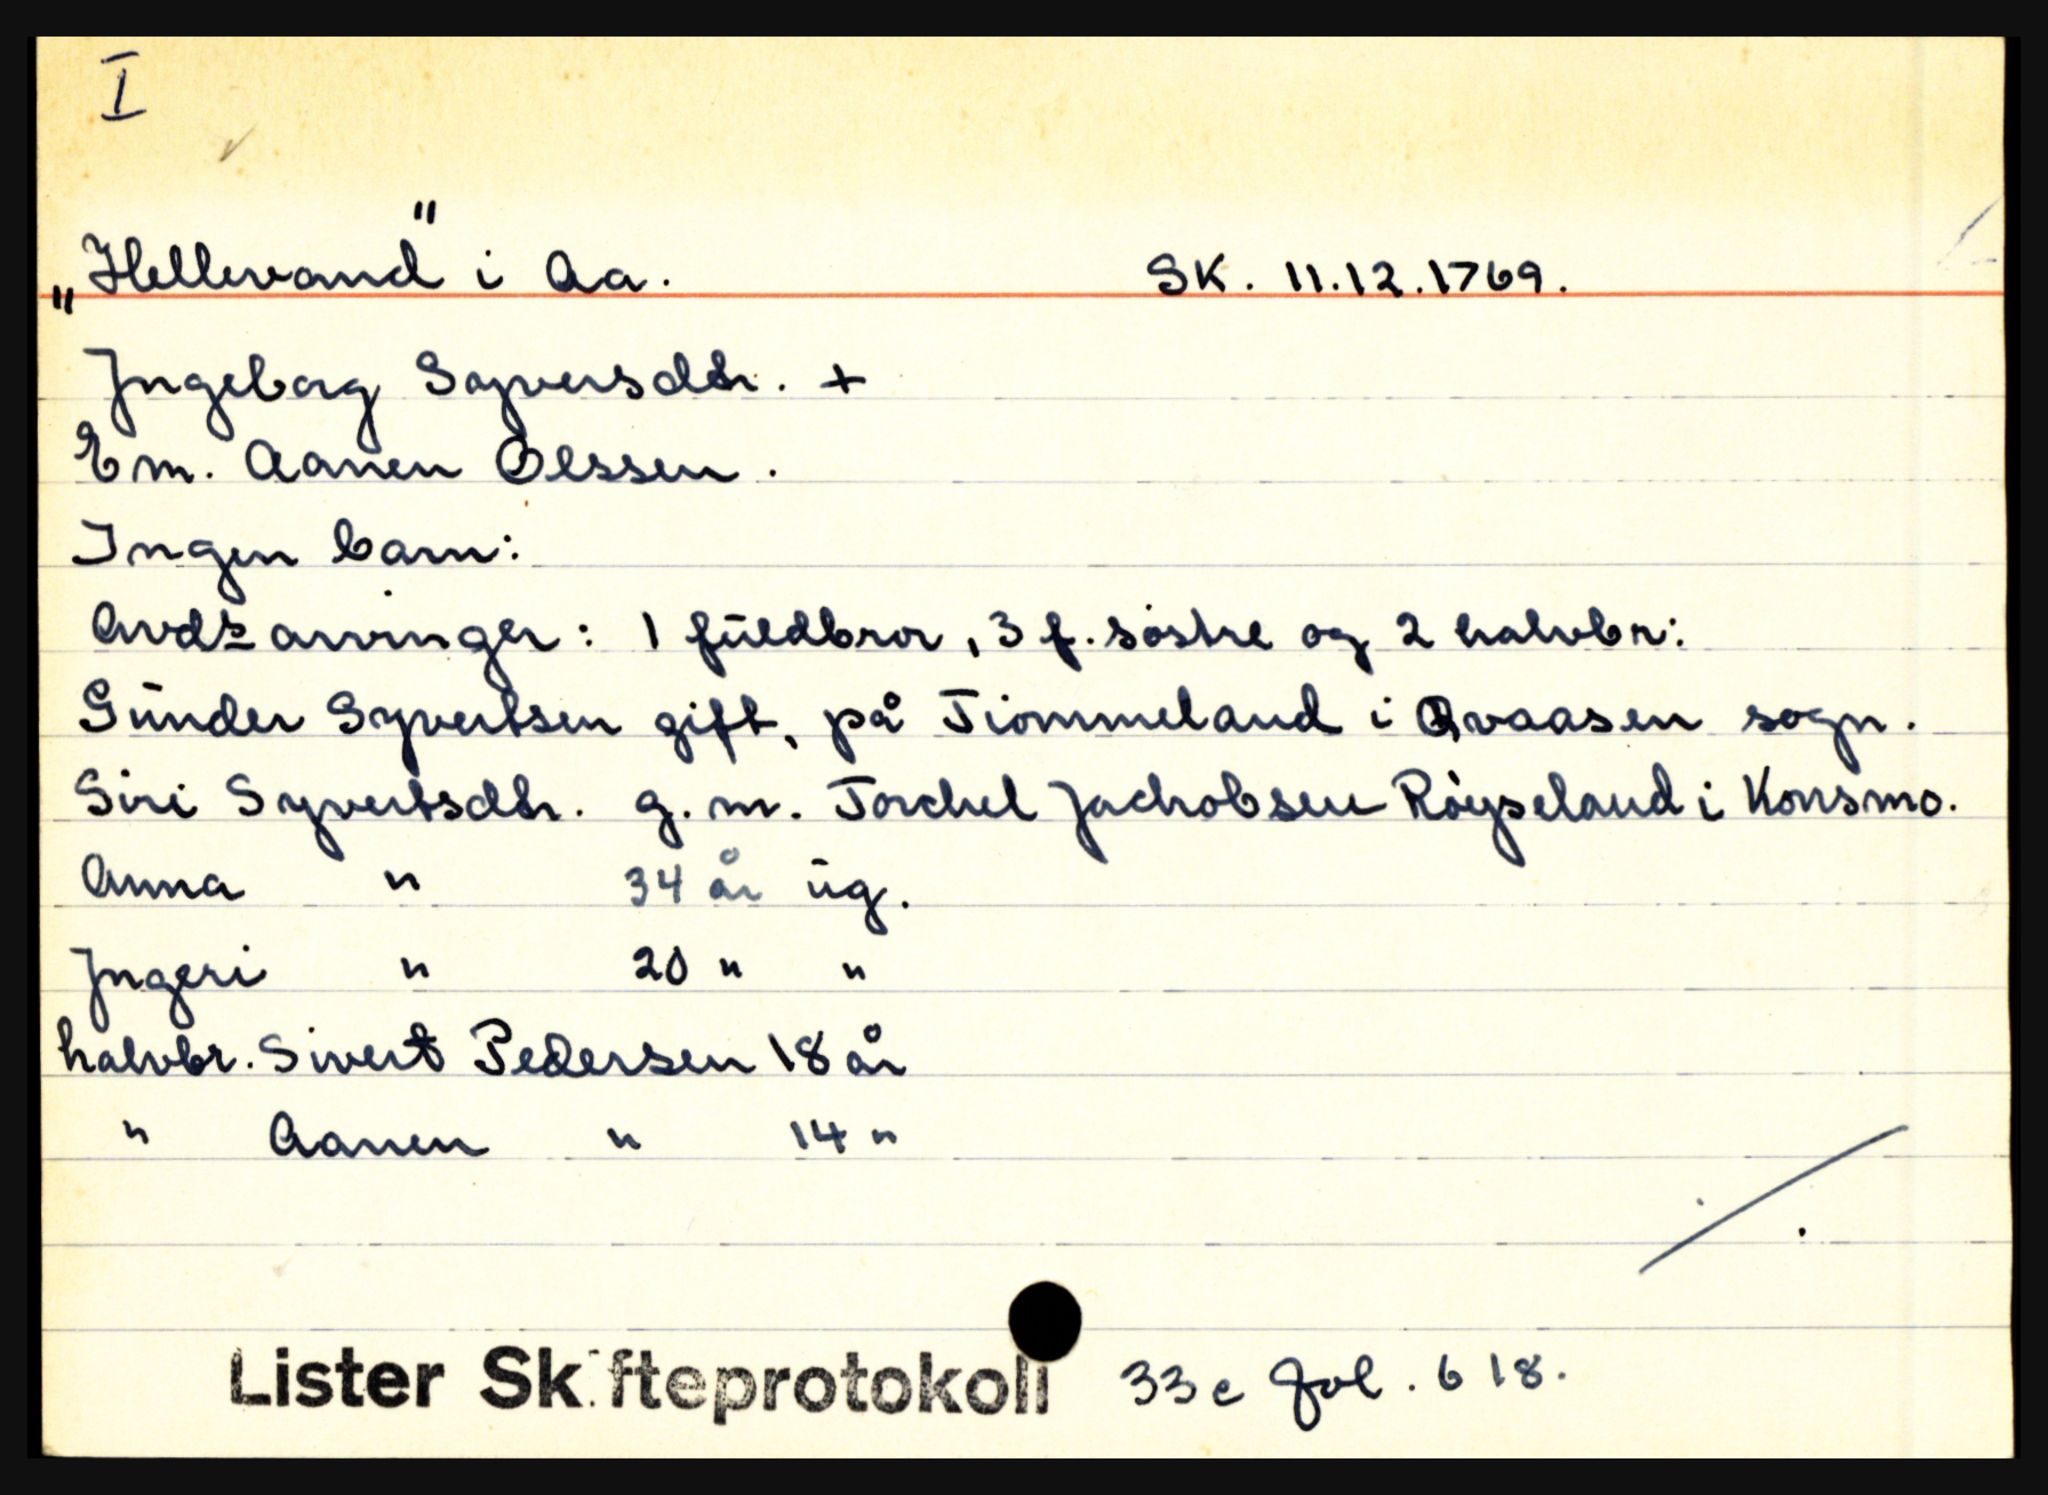 I
"Hellevand" i Aa. SK. 11.12.1769.
Ingeborg Syversdtr. +
Em. Aanen Olssen.
Ingen barn:
Avds arvinger: 1 fuldbror, 3 f. søstre og 2 halvbr:
Gunder Syvertsen gift, på Tiommeland i Qvaasen sogn.
Siri Syvertsdtr. g. m. Torchel Jachobsen Røyseland i Konsmo.
Anna " 34 år ug.
Ingeri " 20 " "
halvbr. Sivert Pedersen 18 år
" Aanen " 14 "
Lister Skifteprotokoll 33c fol. 618.